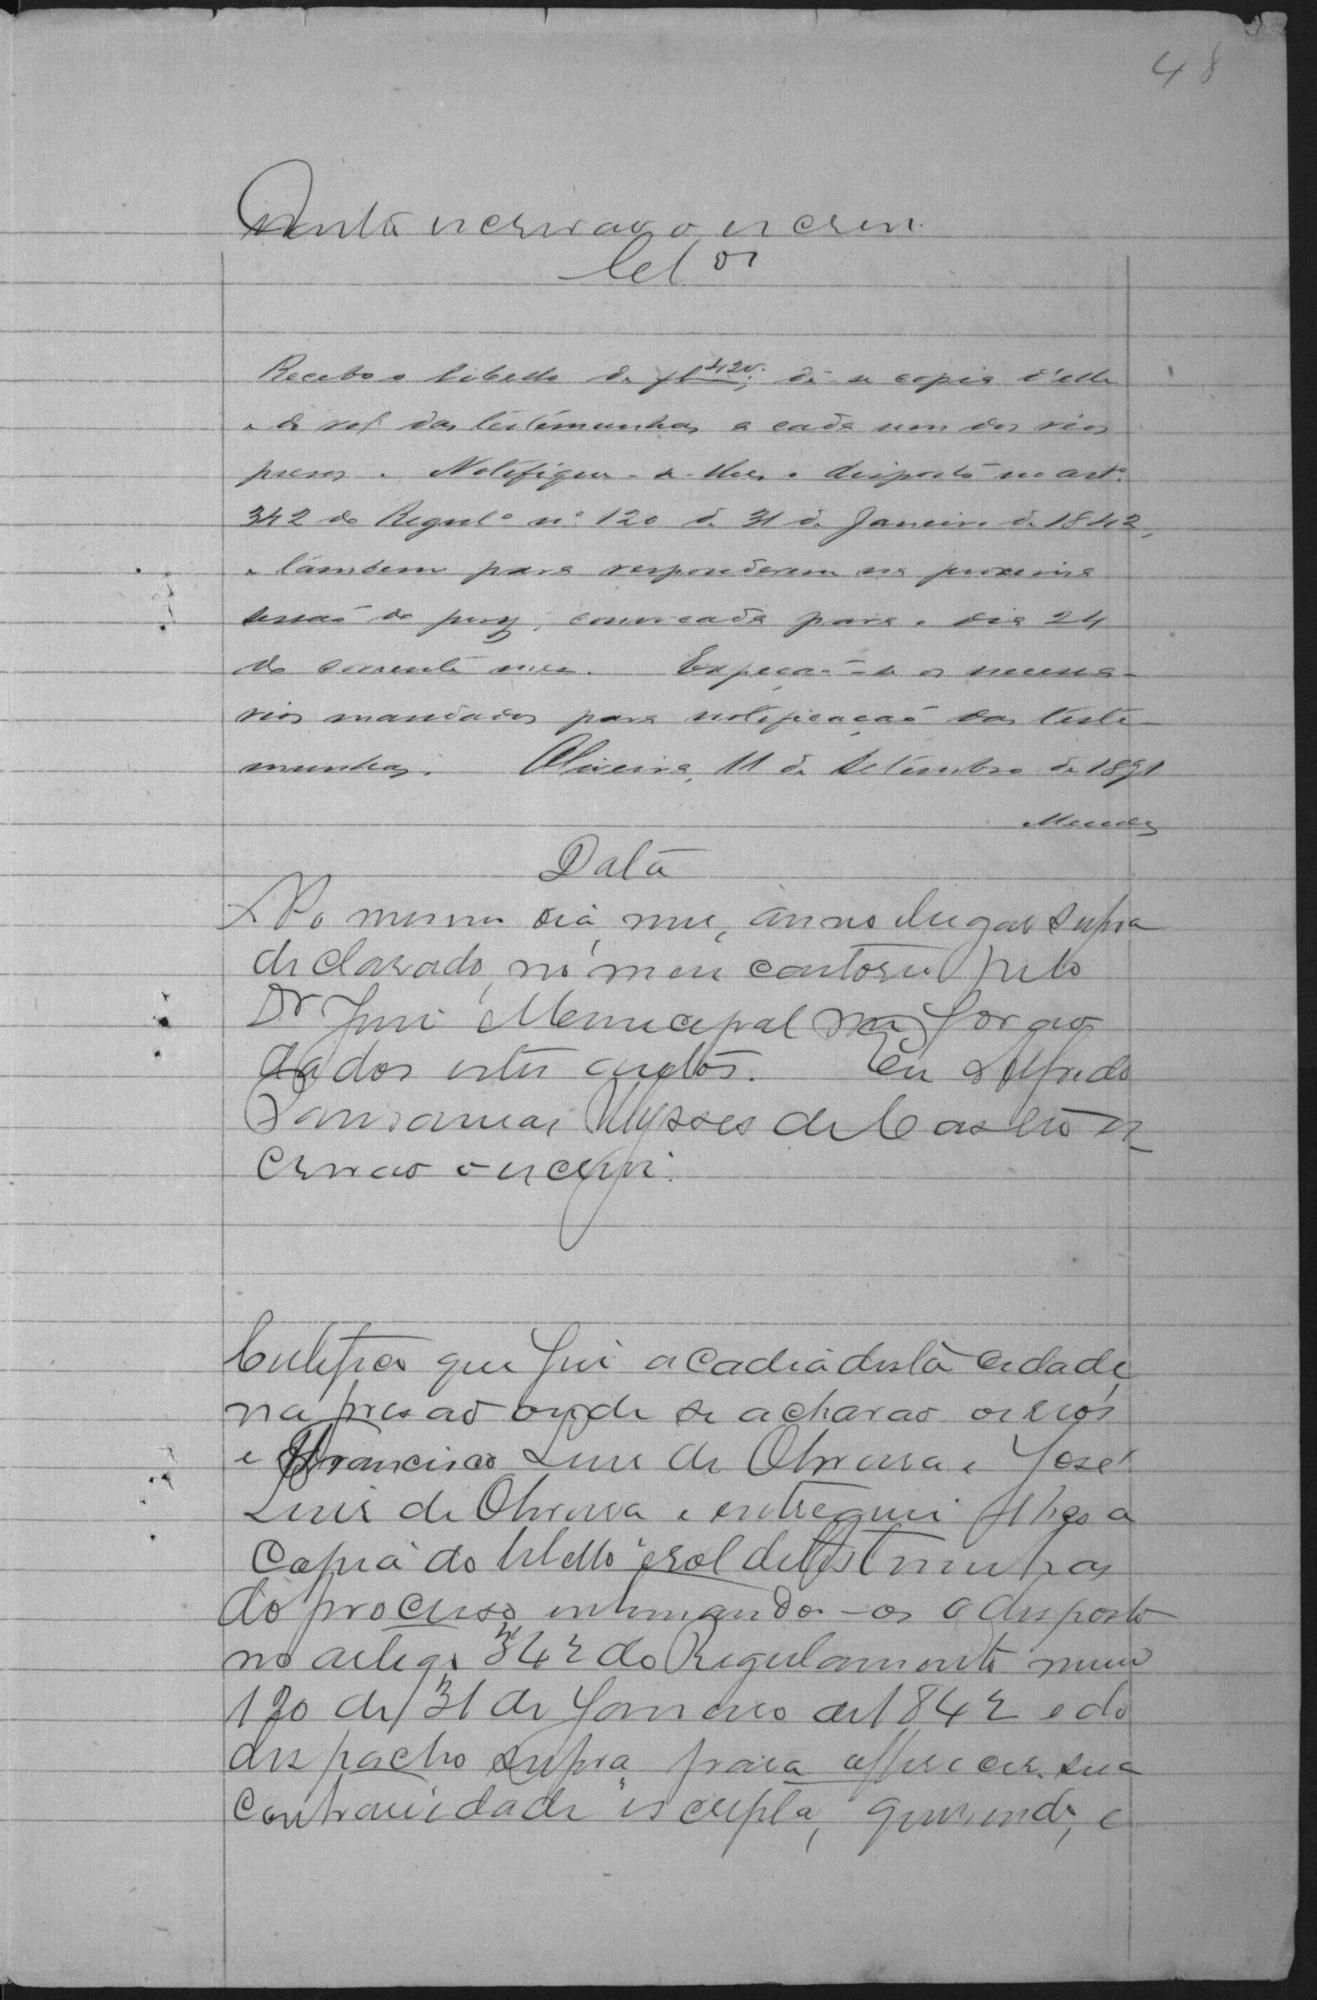 48
escrivão o escrevi.
Cls os
Recebo o libello de fl 42v; dê-se copia d'elle
e do rol das testemunhas a cada um dos réos
presos. Notifique-se-lhes o disposto no art.º
342 do Regul.º nº 120 de 31 de Janeiro de 1842,
e tambem para responderem na proxima
sessaõ do jury, convocada para o dia 24
do corrente mez. Expeçaõ-se os necessa-
rios mandados para notificaçaõ das teste-
munhas. Oliveira, 11 de Setembro de 1891
Mendes
Data
No mesmo dia, mez, anno e lugar supra
declarado, no meu cartorio pelo
Dr Juiz Municipal me forão
dados estes autos. Eu Alfredo
Ulysses de Castro es-
crivão o escrevi.
Certefico que fui a cadeia desta cidade,
na presão onde se acharão os reos
e Francisco Luis de Oliveira e José
Luis de Oliveira e entreguei lhes a
Copia do libello e rol de testemunhas
do processo, intimando-os o disposto
no artigo 342 do Regulamento num
120 de 31 de Janeiro de 1842 e do
despacho supra, para offerecer sua
contrariedade escripta, querendo, e